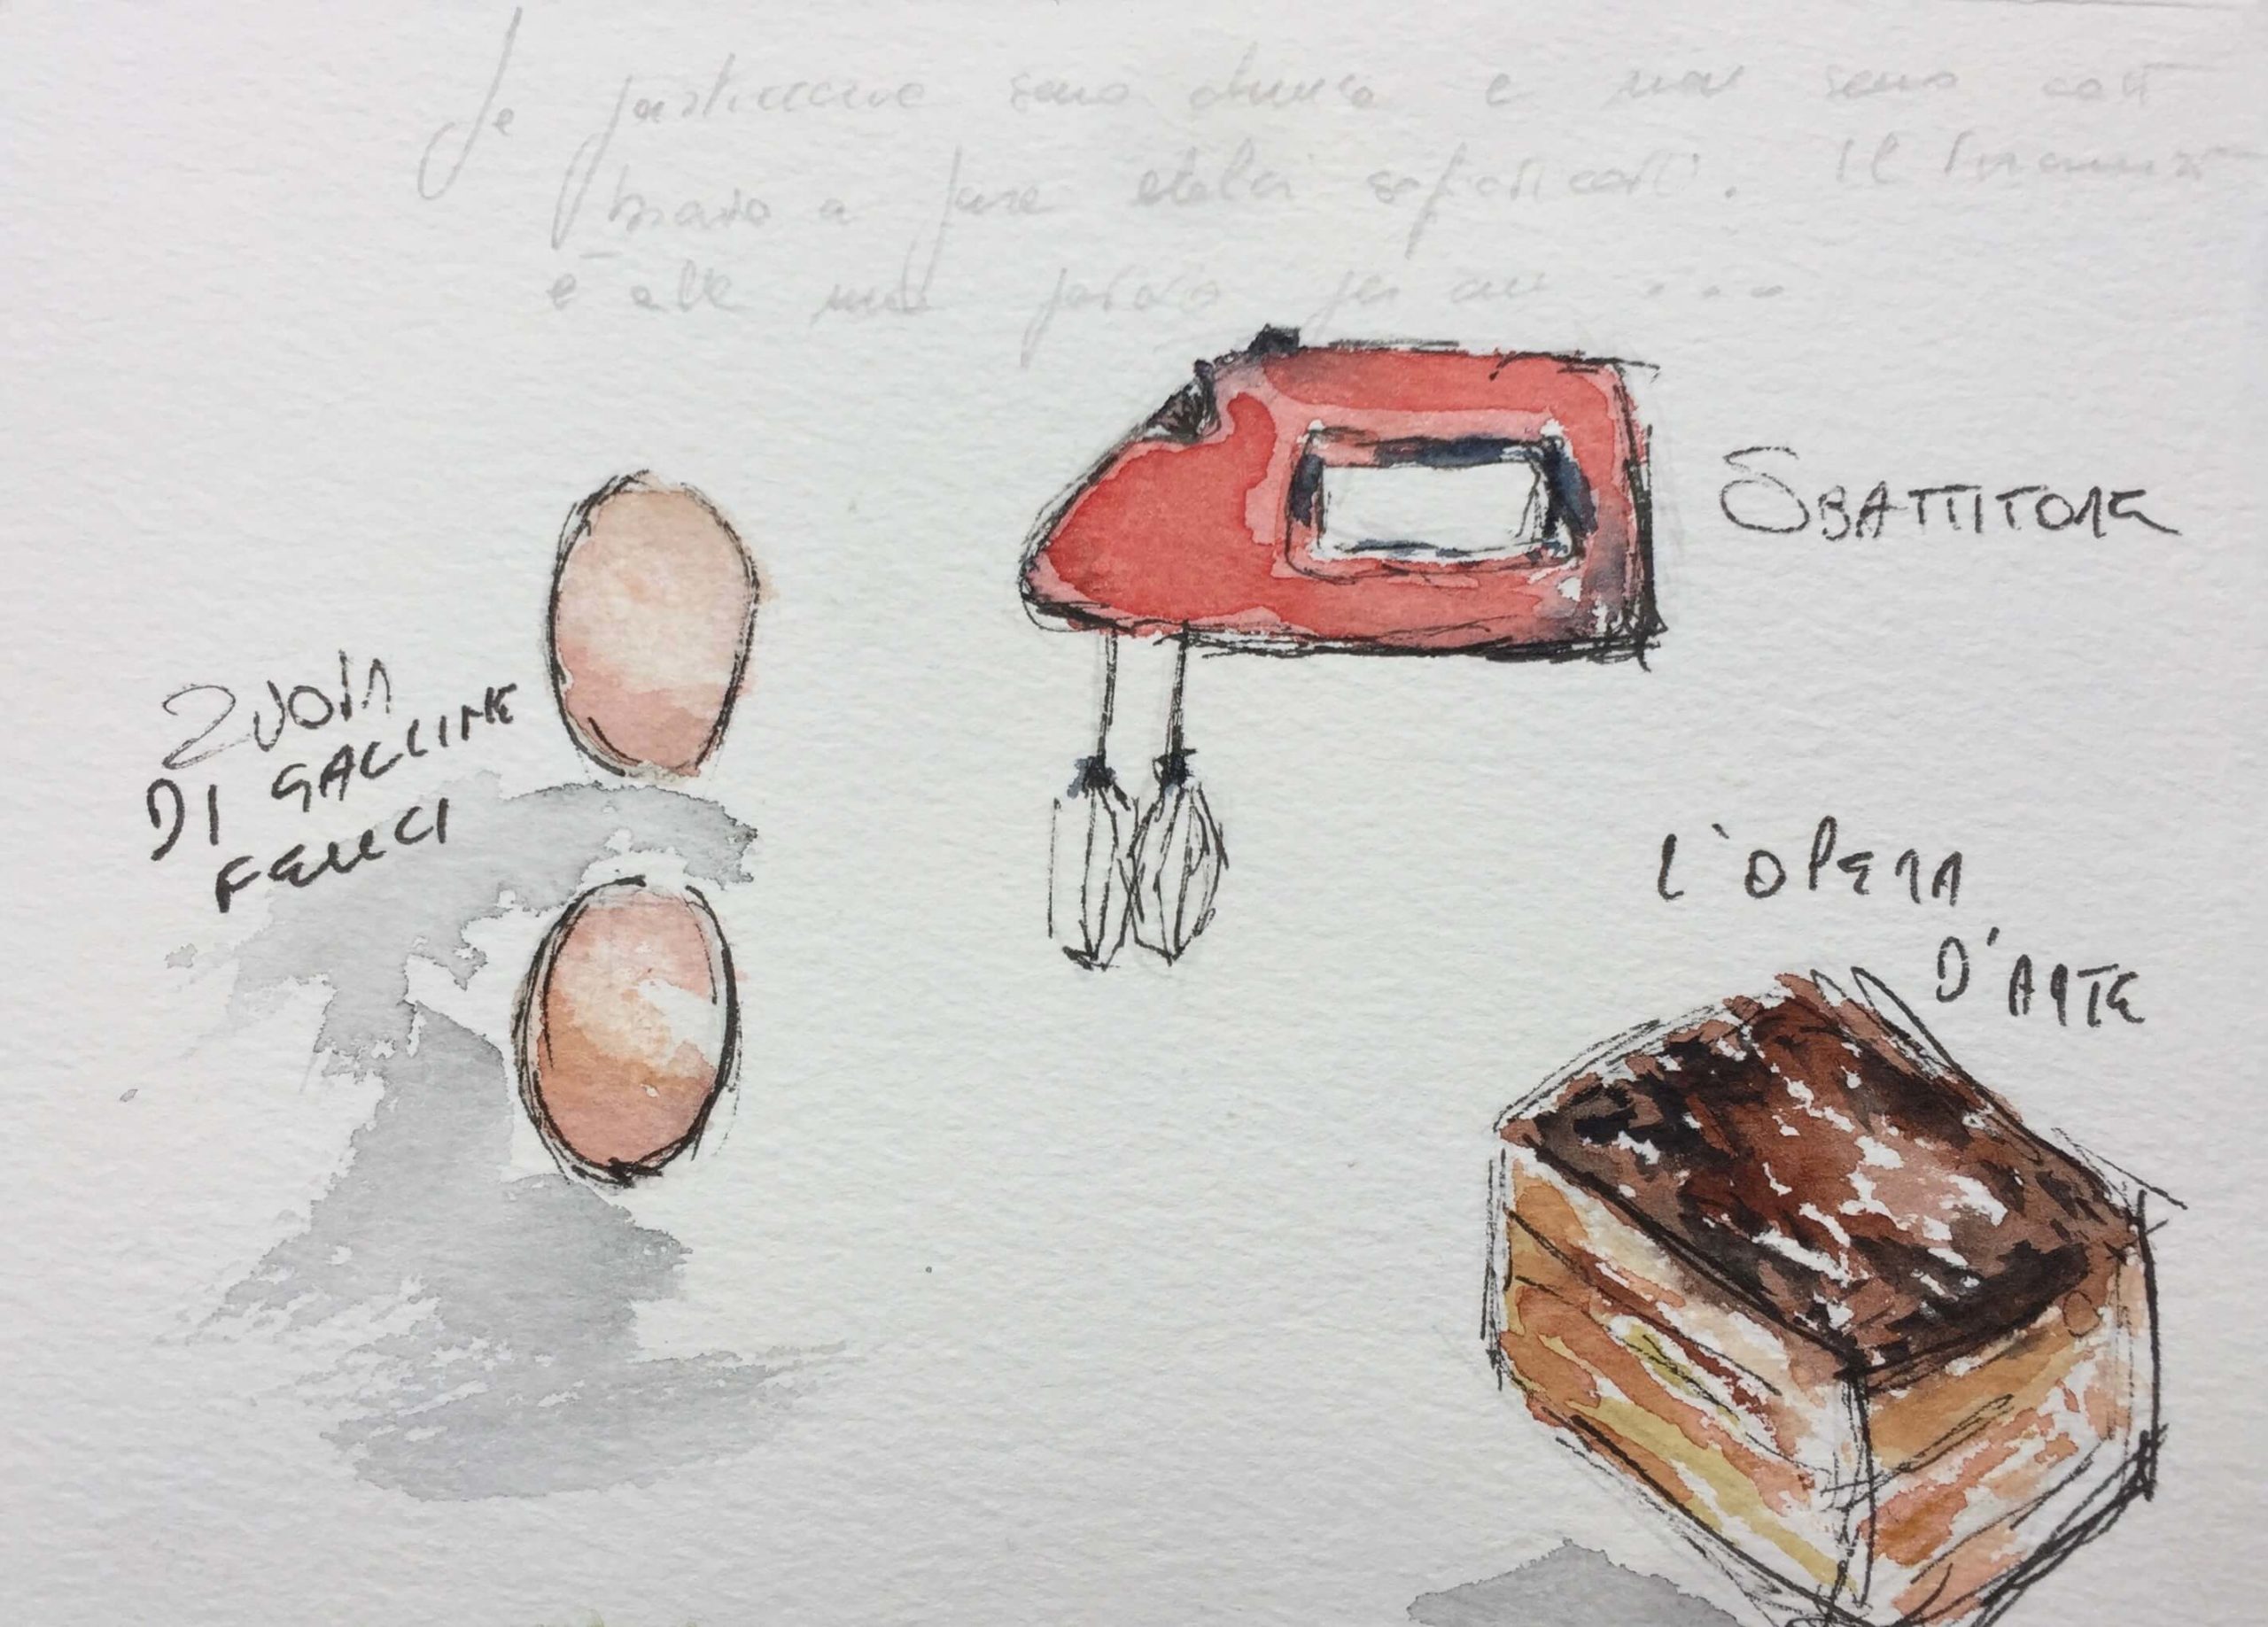 Le pasticcerie sono chiuse e non sono così
bravo a fare dolci sofisticati. Il tiramisù
è alla mia per cui ...
SBATTITORE
2 UOVA
DI GALLINE
FELICI
L'OPERA
D'ARTE